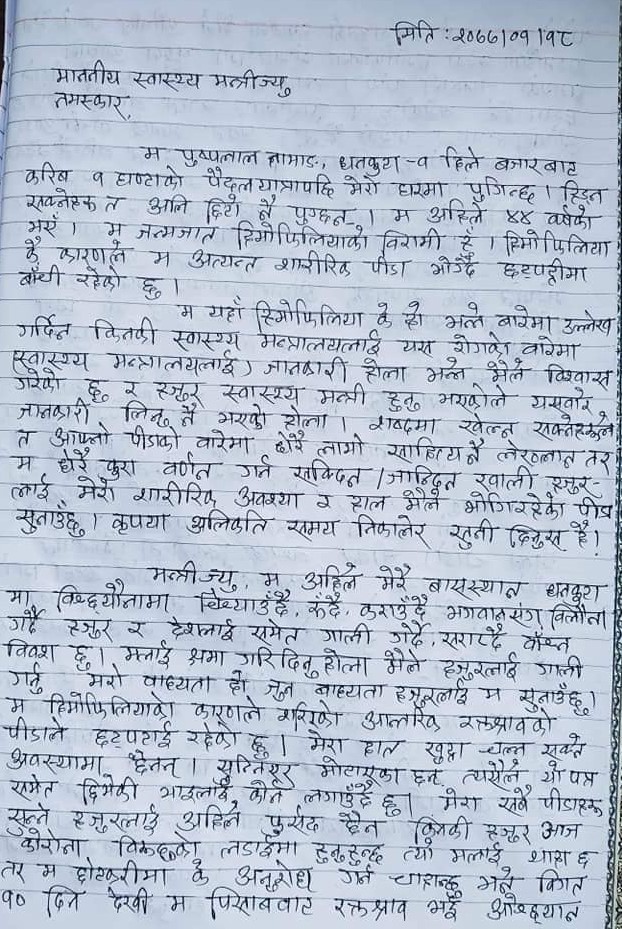 मिति : २०७७।०१।१८
माननीय स्वास्थ्य मन्त्रीज्यु
नमस्कार,
म पुष्पलाल नामाङ, धनकुटा-१ हिले बजारबाट
करिब १ घण्टाको पैदलयात्रापछि मेरो घरमा पुगिन्छ । हिड्न
सक्नेहरू त अलि छिटो नै पुग्छन् । म अहिले ४४ वर्षको
भएँ । म जन्मजात हिमोफिलियाको विरामी हुँ । हिमोफिलिया
कै कारणले म अत्यन्त शारीरिक पीडा भोग्दै छट्पट्टीमा
बाँची रहेको छु ।
म यहाँ हिमोफिलिया के हो भन्ने बारेमा उल्लेख
गर्दिन किनकी स्वास्थ्य मन्त्रालयलाई यस रोगको वारेमा
(स्वास्थ्य मन्त्रालयलाई) जानकारी होला भन्ने मैले विश्वास
गरेको छु र हजुर स्वास्थ्य मन्त्री हुनु भएकोले यसबारे
जानकारी लिनु नै भएको होला । शब्दमा खेल्न सक्नेहरूले
त आफ्नो पीडाको वारेमा धेरै लामो साहित्य नै लेख्लान तर
म धेरै कुरा वर्णन गर्न सक्दिन / जान्दिन खाली हजुर-
लाई मेरो शारीरिक अवस्था र हाल मैले भोगिरहेको पीडा
सुनाउँछु । कृपया अलिकति समय निकालेर सुनी दिनुस है!
मन्त्रीज्यु, म अहिले मेरै बासस्थान धनकुटा
मा विछ्यौनामा चिच्याउँदै, रूँदै, कराउँदै भगवानसंग विलौना
गर्दै हजुर र देशलाई समेत गाली गर्दै, सराप्दै बाँच्न
विवश छु । मलाई क्षमा गरि दिनु होला मैले हजुरलाई गाली
गर्नु मेरो वाध्यता हो जुन बाध्यता हजुरलाई म सुनाउँछु ।
म हिमोफिलियाको कारणले शरिरको आन्तरिक रक्तश्रावको
पीडाले छट्पटाई रहेको छु । मेरा हात खुट्टा चल्न सक्ने
अवस्थामा छैनन् । सुन्निएर मोटाएका छन् त्यसैले यो पत्र
समेत छिमेकी भाइलाई कोर्न लगाउँदै छु । मेरा सबै पीडाहरू
सुन्ने हजुरलाई अहिले फुर्सद छैन किनकी हजुर आज
कोरोना विरूद्धको लडाईमा हुनुहुन्छ त्यो मलाई थाहा छ
तर म छोटकरीमा के अनुरोध गर्न चाहन्छु भने विगत
१० दिन देखी म पिसाबबाट रक्तश्राव भई